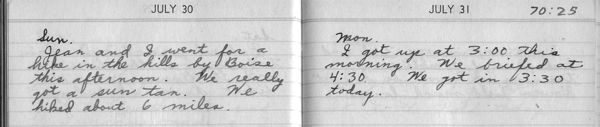 JULY 30
Sun.
Jean and I went for a
hike in the hills by Boise
this afternoon. We really
got a sun tan. We
hiked about 6 miles.
JULY 31 70:25
Mon.
I got up at 3:00 this
morning. We briefed at
4:30 We got in 3:30
today.